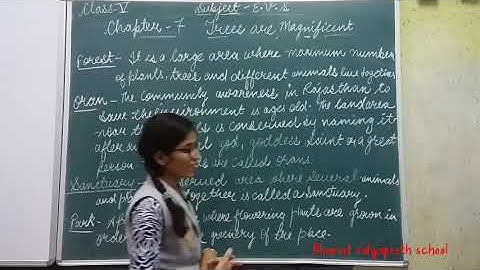 Class-V Subject - E.V.S
Chapter-7 Trees are Magnificent
Forest - It is a large area where maximum number
of plants, trees and different animals live together
Oran - The community awareness in Rajasthan to
save the environment is ages old. The land area
near the is conserved by naming it
after god, goddess saint or a great
person called orans.
Sanctuary - served area where several animals
and together is called a Sanctuary.
Park - A where flowering plants are grown in
order scenery of the place.
Bharat vidyapeeth school